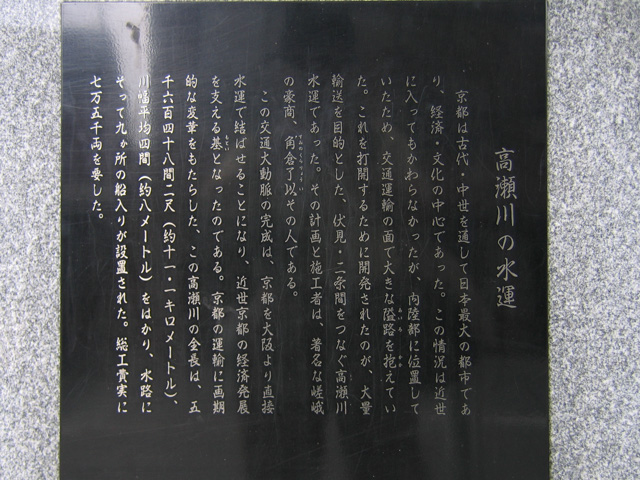 高瀬川の水運
京都は古代・中世を通して日本最大の都市であ
り、経済・文化の中心であった。この情況は近世
に入ってもかわらなかったが、内陸部に位置して
いたため、交通運輸の面で大きな隘路を抱えてい
た。これを打開するために開発されたのが、大量
輸送を目的とした、伏見・二条間をつなぐ高瀬川
水運であった。その計画と施工者は、著名な嵯峨
の豪商、角倉了以その人である。
この交通大動脈の完成は、京都を大阪より直接
水運で結ばせることになり、近世京都の経済発展
を支える基となったのである。京都の運輸に画期
的な変革をもたらした、この高瀬川の全長は、五
千六百四十八間二尺（約十一・一キロメートル）、
川幅平均四間（約八メートル）をはかり、水路に
そって九ヶ所の船入りが設置された。総工費実に
七万五千両を要した。